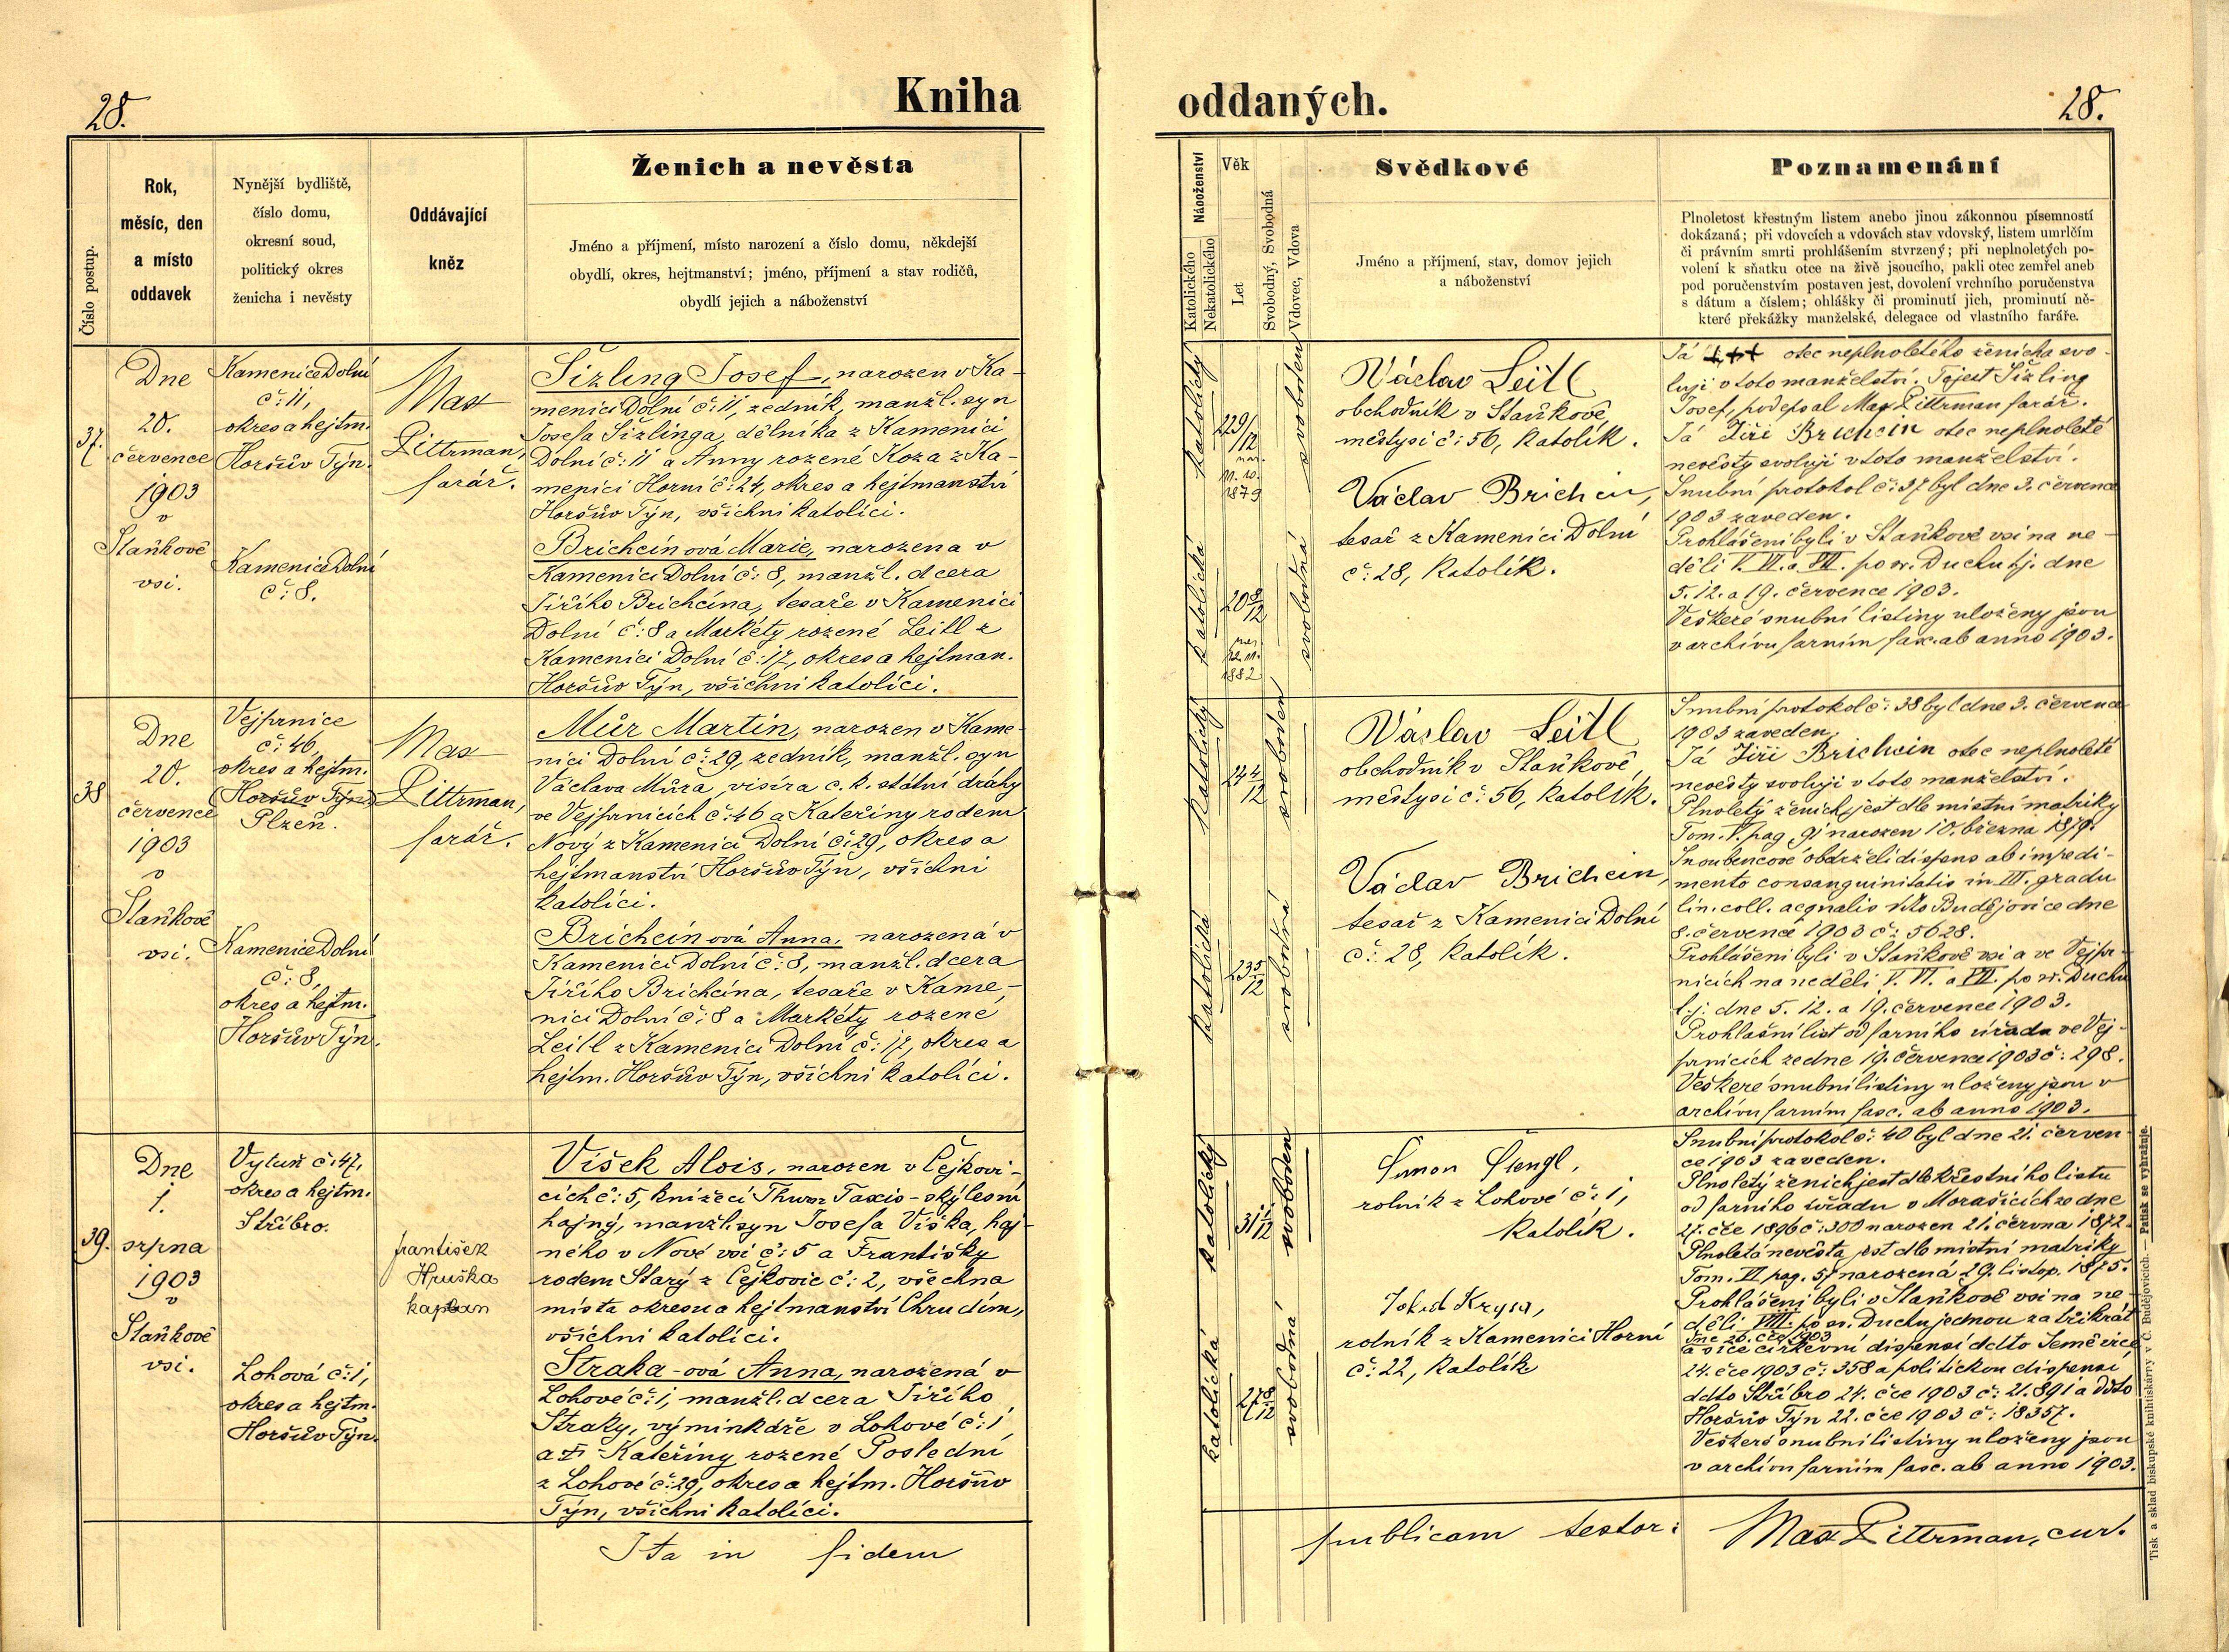 28.
Kniha
Číslo postup.
Rok,
měsíc, den
a místo
oddavek
Nynější bydliště,
číslo domu,
okresní soud,
politický okres
ženicha i nevěsty
Oddávající
kněz
Ženich a nevěsta
Jméno a příjmení, místo narození a číslo domu, někdejší
obydlí, okres, hejtmanství; jméno, příjmení a stav rodičů,
obydlí jejich a náboženství
37.
Dne
20.
července
1903
v
Staňkově
vsi.
Kamenice Dolní
č: 11,
okres a hejtm.
Horšův Týn.
Kamenice Dolní
č: 8.
Max
Pittrman,
farář.
Sizling Josef, narozen v Ka-
menici Dolní č: 11, zedník, manžl. syn
Josefa Sizlinga, dělníka z Kamenici
Dolní č: 11 a Anny rozené Koza z Ka-
menici Horní č: 24, okres a hejtmanství
Horšův Týn, všichni katolíci.
Brichcínová Marie, narozena v
Kamenici Dolní č: 8, manžl. dcera
Jiřího Brichcína, tesaře v Kamenici
Dolní č: 8 a Markéty rozené Leitl z
Kamenici Dolní č: 17, okres a hejtman.
Horšův Týn, všichni katolíci.
38
Dne
20.
července
1903
v
Staňkově
vsi.
Vejprnice
č: 46,
okres a hejtm.
Horšův Týn
Plzeň.
Kamenice Dolní
č: 8,
okres a hejtm.
Horšův Týn.
Max
Pittrman,
farář.
Můr Martin, narozen v Kame-
nici Dolní č: 29, zedník, manžl. syn
Václava Můra, visíra c. k. státní dráhy
ve Vejprnicích č: 46 a Kateřiny rodem
Nový z Kamenici Dolní č: 29, okres a
hejtmanství Horšův Týn, všichni
katolíci.
Brichcínová Anna, narozená v
Kamenici Dolní č: 8, manžl. dcera
Jiřího Brichcína, tesaře v Kame-
nici Dolní č: 8 a Markéty rozené
Leitl z Kamenici Dolní č: 17, okres a
hejtm. Horšův Týn, všichni katolíci.
39.
Dne
1.
srpna
1903
v
Staňkově
vsi.
Vytuň č: 47,
okres a hejtm.
Stříbro.
Lohová č: 1,
okres a hejtm.
Horšův Týn.
František
Hruška
kaplan
Víšek Alois, narozen v Čejkovi-
cích č: 5, knížecí Thurn Taxis-ský lesní
hajný, manžl. syn Josefa Víška, haj-
ného v Nové vsi č: 5 a Františky
rodem Starý z Čejkovic č: 2, všechna
místa okresu a hejtmanství Chrudim,
všichni katolíci.
Straka-ová Anna, narozená v
Lohové č: 1, manžl. dcera Jiřího
Straky, výminkáře v Lohové č: 1
a Kateřiny rozené Poslední
z Lohové č: 29, okres a hejtm. Horšův
Týn, všichni katolíci.
Ita in fidem
oddaných.
28.
Náboženství
Katolického
Nekatolického
Věk
Let
Svobodný, Svobodná
Vdovec, Vdova
Svědkové
Jméno a příjmení, stav, domov jejich
a náboženství
Poznamenání
Plnoletost křestným listem anebo jinou zákonnou písemností
dokázaná; při vdovcích a vdovách stav vdovský, listem umrlčím
či právním smrti prohlášením stvrzený; při neplnoletých po-
volení k sňatku otce na živě jsoucího, pakli otec zemřel aneb
pod poručenstvím postaven jest, dovolení vrchního poručenstva
s dátum a číslem; ohlášky či prominutí jich, prominutí ně-
které překážky manželské, delegace od vlastního faráře.
katolický
22 9/12
nar.
1879
svoboden
katolická
20 8/12
nar.
1882
svobodná
Václav Leitl
obchodník v Staňkově,
městysi č: 56, katolík.
Václav Brichcín,
tesař z Kamenici Dolní
č: 28, katolík.
Já +++ otec neplnoletého ženicha svo-
luji v toto manželství. Tojest Sizling
Josef, podepsal Max Pittrman farář.
Já Jiří Brichcín otec neplnoleté
nevěsty svoluji v toto manželství.
Snubní protokol č: 37 byl dne 3. července
1903 zaveden.
Prohlášeni byli v Staňkově vsi na ne-
děli V. VI. a VII. po sv. Duchu tj. dne
5. 12. a 19. července 1903.
Veškeré snubní listiny uloženy jsou
v archivu farním fasc. ab anno 1903.
katolický
24 4/12
svoboden
katolická
23 5/12
svobodná
Václav Leitl
obchodník v Staňkově,
městysi č: 56, katolík.
Václav Brichcín,
tesař z Kamenici Dolní
č: 28, katolík.
Snubní protokol č: 38 byl dne 3. července
1903 zaveden.
Já Jiří Brichcín otec neplnoleté
nevěsty svoluji v toto manželství.
Plnoletý ženich jest dle místní matriky
Tom. V. pag. 91 narozen 10. března 1879.
Snoubencové obdrželi dispens ab impedi-
mento consanguinitatis in III. gradu
lin. coll. aequalis ddto Budějovice dne
8. července 1903 č: 5628.
Prohlášeni byli v Staňkově vsi a ve Vejpr-
nicích na neděli V. VI. a VII. po sv. Duchu
t. j. dne 5. 12. a 19. července 1903.
Prohlašní list od farního úřadu ve Vej-
prnicích ze dne 19. července 1903 č: 298.
Veškeré snubní listiny uloženy jsou v
archivu farním fasc. ab anno 1903.
katolický
31 1/12
svoboden
katolická
27 8/12
svobodná
Šimon Čiengl,
rolník z Lohové č: 1,
katolík.
Jakub Krysa,
rolník z Kamenici Horní
č: 22, katolík
Snubní protokol č: 40 byl dne 21. červen-
ce 1903 zaveden.
Plnoletý ženich jest dle křestního listu
od farního úřadu v Morašicích ze dne
27. čce 1896 č: 300 narozen 21. června 1872.
Plnoletá nevěsta jest dle místní matriky
Tom. VI pag. 57 narozená 29. listop. 1875.
Prohlášeni byli v Staňkově vsi na ne-
děli VIII. po sv. Duchu jednou za třikrát
dne 26. čce 1903
a sice církevní dispensí ddto
24. čce 1903 č: 358 a politickou dispensí
ddto Stříbro 24. čce 1903 č: 21.891 a ddto
Horšův Týn 22. čce 1903 č: 18357.
Veškeré snubní listiny uloženy jsou
v archivu farním fasc. ab anno 1903.
publicam testor: Max Pittrman, cur.
Tisk a sklad biskupské knihtiskárny v Č. Budějovicích. — Patisk se vyhražuje.